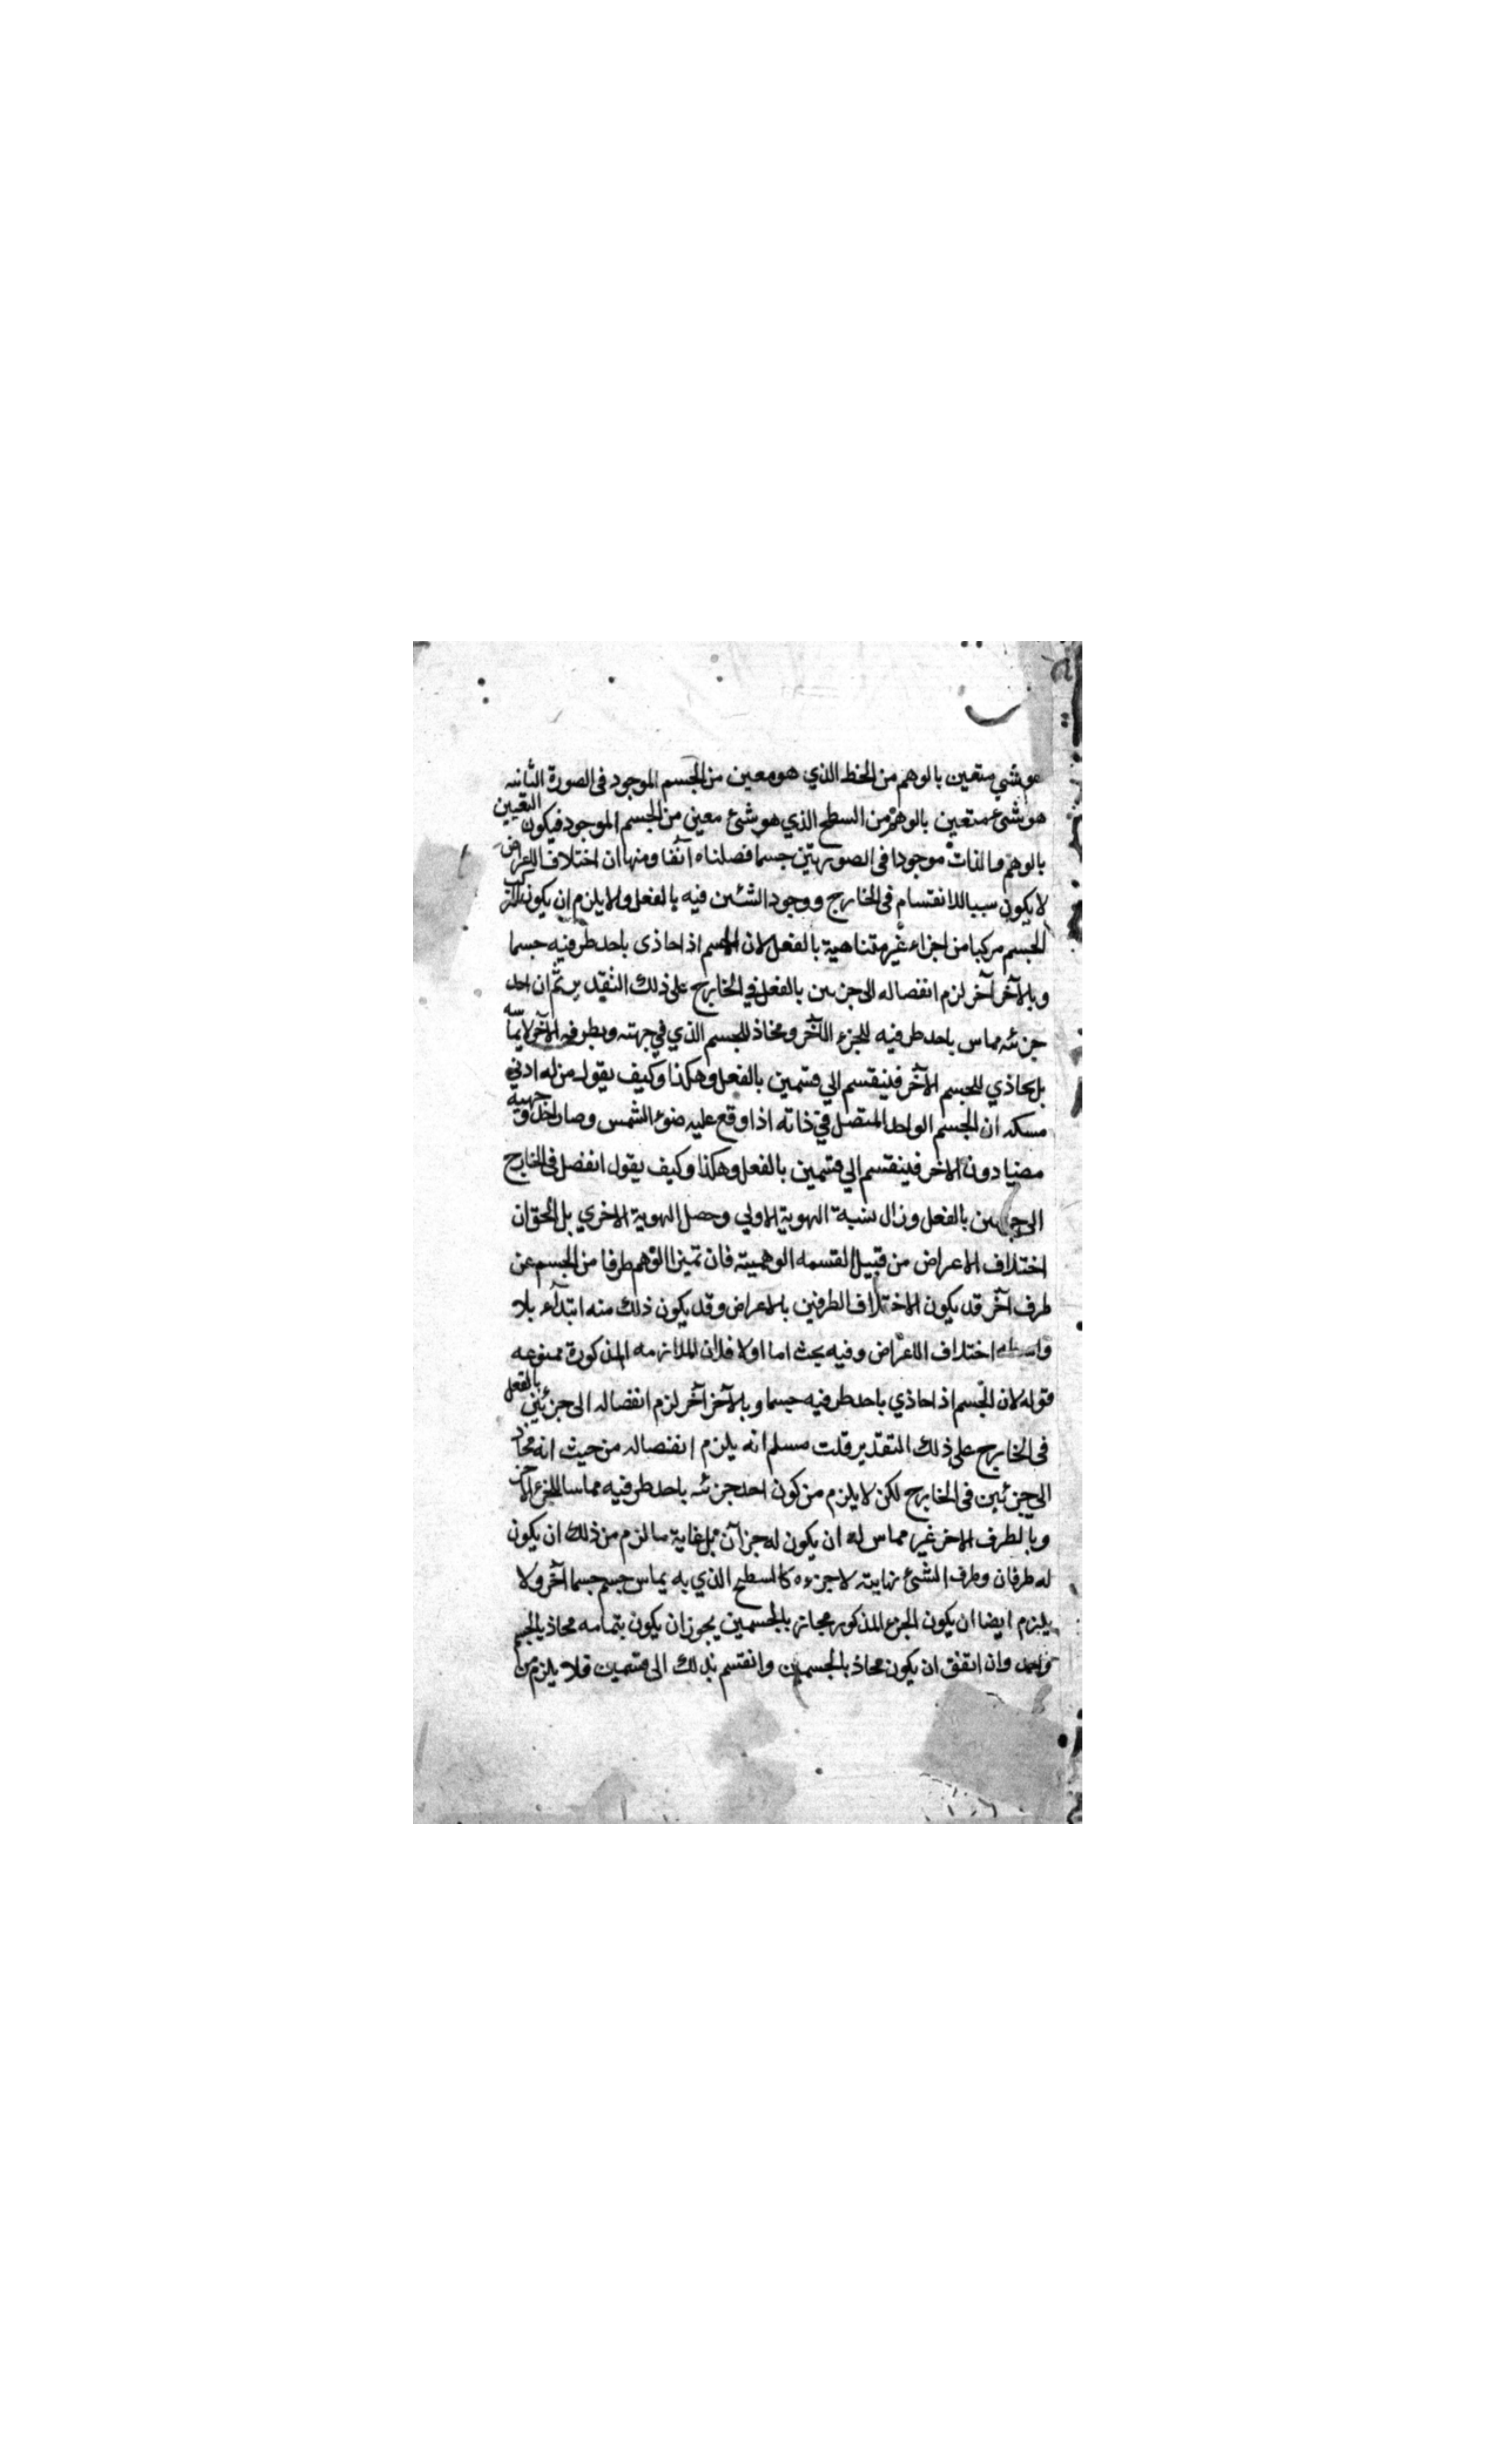 هو شيء متعين بالوهم من الخط الذي هو معين من الجسم الموجود في الصورة الثانيه
هو شئ متعين بالوهم من السطح الذي هو شئ معين من الجسم الموجود فيكون التعيين
بالوهم وبالذات موجودا في الصورتين حسبما فصلناه آنفا ومنها ان اختلاف الاعراض
لا يكون سببا للانقسام في الخارج ووجود الشئين فيه بالفعل والا يلزم ان يكون
الجسم مركبا من اجزاء غير متناهية بالفعل لان الجسم اذا حاذى باحد طرفيه جسما
وبالآخر آخر لزم انفصاله الى جزئين بالفعل في الخارج على ذلك التقدير ثم ان احد
جزئه مماس باحد طرفيه للجزء الآخر ومحاذ للجسم الذي في جهته وبطرفه الآخر لا يماسه
بل يحاذي للجسم الآخر فينقسم الي قسمين بالفعل وهكذا وكيف يقول من له ادنى
مسكه ان الجسم الواحد المتصل في ذاته اذا وقع عليه ضوء الشمس وصار
مضيا دون الاخر فينقسم الي قسمين بالفعل وهكذا وكيف يقول انفصل في الخارج
الى جزئين بالفعل وزال نسبة الهوية الاولي وحصل الهوية الاخري بل الحق ان
اختلاف الاعراض من قبيل القسمه الوهمية فان تميز الوهم طرفا من الجسم عن
طرف آخر قد يكون الاختلاف الطرفين بالاعراض وقد يكون ذلك منه ابتدآء بلا
اختلاف الاعراض وفيه بحث اما اولا فلان الملازمه المذكورة ممنوعه
قوله لان الجسم اذا حاذي باحد طرفيه جسما وبالآخر آخر لزم انفصاله الى جزئين بالفعل
في الخارج على ذلك التقدير قلت مسلم انه يلزم انفصاله من حيث انه محاذ
الى جزئين في الخارج لكن لا يلزم من كون احد جزئه باحد طرفيه مماسا للجزء الآخر
وبالطرف الاخر غير مماس له ان يكون له جزآن بل غاية ما لزم من ذلك ان يكون
له طرفان وطرف الشئ نهايته لا جزءه كالسطح الذي به يماس جسم جسما آخر ولا
يلزم ايضا ان يكون الجزء المذكور محاذ بالجسمين يجوز ان يكون بتمامه محاذ بالجسم
واحد وان اتفق ان يكون محاذ بالجسمين وانقسم بذلك الى قسمين فلا يلزم من